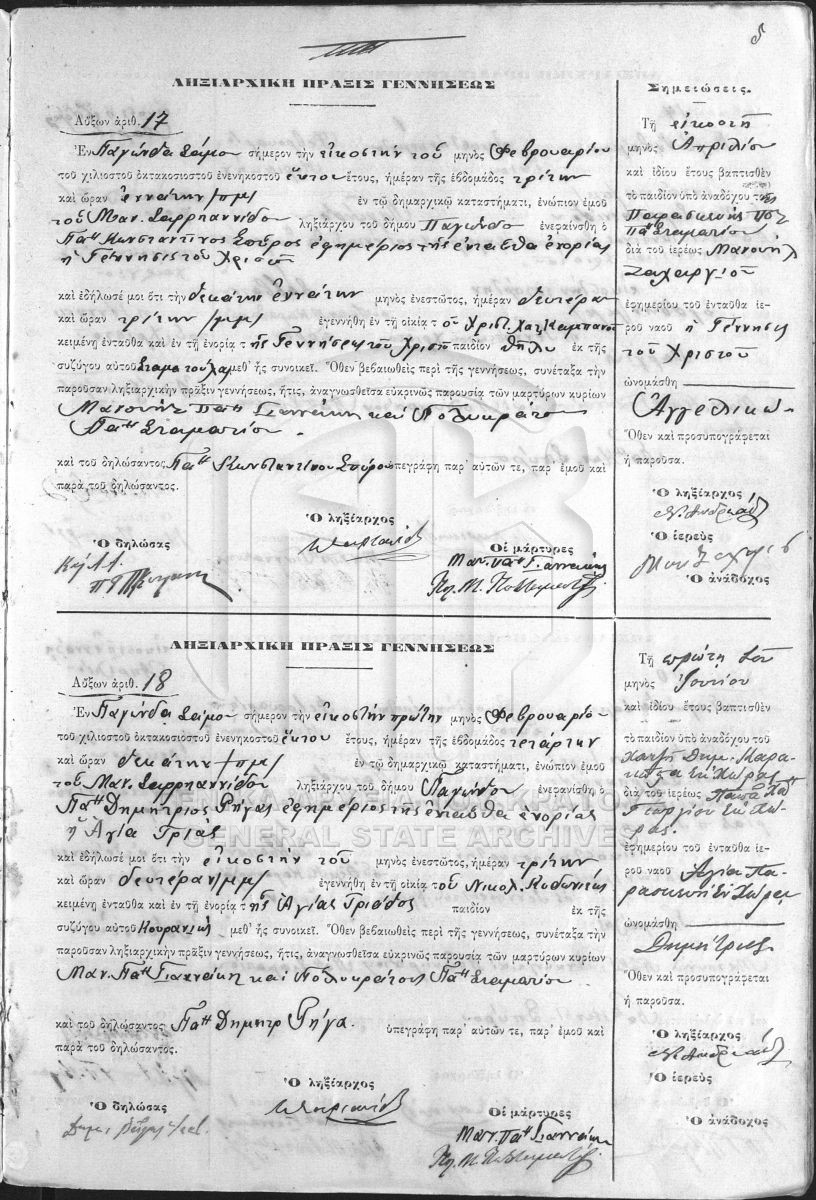 ΛΗΞΙΑΡΧΙΚΗ ΠΡΑΞΙΣ ΓΕΝΝΗΣΕΩΣ
Αὔξων ἀριθ. 17
Ἐν Παγώνδα Σάμου σήμερον τὴν εἰκοστὴν τοῦ μηνὸς Φεβρουαρίου
τοῦ χιλιοστοῦ ὀκτακοσιοστοῦ ἐνενηκοστοῦ ἕκτου ἔτους, ἡμέραν τῆς ἑβδομάδος τρίτην
καὶ ὥραν ἐννάτην /πμ/ ἐν τῷ δημαρχικῷ καταστήματι, ἐνώπιον ἐμοῦ
τοῦ Μαν. ληξιάρχου τοῦ δήμου Παγώνδο ἐνεφανίσθη ὁ
Παπ Κωνσταντῖνος Σπύρος ἐφημέριος τῆς ἐνταῦθα ἐνορίας
ἡ Γέννησις τοῦ Χριστοῦ
καὶ ἐδήλωσέ μοι ὅτι τὴν δεκάτην ἐννάτην μηνὸς ἐνεστῶτος, ἡμέραν δευτέραν
καὶ ὥραν τρίτην /μμ/ ἐγεννήθη ἐν τῇ οἰκίᾳ τοῦ Χριστ.
κειμένῃ ἐνταῦθα καὶ ἐν τῇ ἐνορίᾳ τῆς Γεννήσεως τοῦ Χριστοῦ παιδίον θῆλυ ἐκ τῆς
συζύγου αὐτοῦ Σταματούλας μεθ' ἧς συνοικεῖ. Ὅθεν βεβαιωθεὶς περὶ τῆς γεννήσεως, συνέταξα τὴν
παροῦσαν ληξιαρχικὴν πρᾶξιν γεννήσεως, ἥτις, ἀναγνωσθεῖσα εὐκρινῶς παρουσίᾳ τῶν μαρτύρων κυρίων
Μανουὴλ Παπ Γιαννάκη καὶ Πολυκράτο
Παπ Σταματίου.
καὶ τοῦ δηλώσαντος Παπ Κωνσταντίνου Σπύρου ὑπεγράφη παρ' αὐτῶν τε, παρ' ἐμοῦ καὶ
παρὰ τοῦ δηλώσαντος.
Ὁ ληξίαρχος
Ὁ δηλώσας
Οἱ μάρτυρες
Μαν. παπ Γιαννάκης
Σημειώσεις.
Τῇ εἰκοστῇ
μηνὸς Ἀπριλίου
καὶ ἰδίου ἔτους βαπτισθὲν
τὸ παιδίον ὑπὸ ἀναδόχου τῆς
Παρασκευῆς
Παπ Σταματίου
διὰ τοῦ ἱερέως Μανουὴλ
Ζαχαρίου
ἐφημερίου τοῦ ἐνταῦθα ἱε-
ροῦ ναοῦ ἡ Γέννησις
τοῦ Χριστοῦ
ὠνομάσθη
Ἀγγελικώ.
Ὅθεν καὶ προσυπογράφεται
ἡ παροῦσα.
Ὁ ληξίαρχος
Ὁ ἱερεὺς
Ὁ ἀνάδοχος
ΛΗΞΙΑΡΧΙΚΗ ΠΡΑΞΙΣ ΓΕΝΝΗΣΕΩΣ
Αὔξων ἀριθ. 18
Ἐν Παγώνδα Σάμου σήμερον τὴν εἰκοστὴν πρώτην μηνὸς Φεβρουαρίου
τοῦ χιλιοστοῦ ὀκτακοσιοστοῦ ἐνενηκοστοῦ ἕκτου ἔτους, ἡμέραν τῆς ἑβδομάδος τετάρτην
καὶ ὥραν δεκάτην /πμ/ ἐν τῷ δημαρχικῷ καταστήματι, ἐνώπιον ἐμοῦ
τοῦ Μαν. ληξιάρχου τοῦ δήμου Παγώνδο ἐνεφανίσθη ὁ
Παπ Δημήτριος Ρήγας ἐφημέριος τῆς ἐνταῦθα ἐνορίας
ἡ Ἁγία Τριάς
καὶ ἐδήλωσέ μοι ὅτι τὴν εἰκοστὴν τοῦ μηνὸς ἐνεστῶτος, ἡμέραν τρίτην
καὶ ὥραν δευτέραν /μμ/ ἐγεννήθη ἐν τῇ οἰκίᾳ τοῦ Νικολ.
κειμένῃ ἐνταῦθα καὶ ἐν τῇ ἐνορίᾳ τῆς Ἁγίας Τριάδος παιδίον ἐκ τῆς
συζύγου αὐτοῦ μεθ' ἧς συνοικεῖ. Ὅθεν βεβαιωθεὶς περὶ τῆς γεννήσεως, συνέταξα τὴν
παροῦσαν ληξιαρχικὴν πρᾶξιν γεννήσεως, ἥτις, ἀναγνωσθεῖσα εὐκρινῶς παρουσίᾳ τῶν μαρτύρων κυρίων
Μαν. Παπ Γιαννάκη καὶ Πολυκράτους Παπ Σταματίου
καὶ τοῦ δηλώσαντος Παπ Δημητρ Ρήγα. ὑπεγράφη παρ' αὐτῶν τε, παρ' ἐμοῦ καὶ
παρὰ τοῦ δηλώσαντος.
Ὁ ληξίαρχος
Ὁ δηλώσας
Οἱ μάρτυρες
Μαν. Παπ Γιαννάκη
Τῇ πρώτῃ τοῦ
μηνὸς Ἰουνίου
καὶ ἰδίου ἔτους βαπτισθὲν
τὸ παιδίον ὑπὸ ἀναδόχου τοῦ
Χατζῆ Δημ.
διὰ τοῦ ἱερέως Παπᾶ
Γεωργίου ἐκ Χώ-
ρας.
ἐφημερίου τοῦ ἐνταῦθα ἱε-
ροῦ ναοῦ Ἁγία Πα-
ρασκευὴ ἐν Χώρᾳ
ὠνομάσθη
Δημήτριος
Ὅθεν καὶ προσυπογράφεται
ἡ παροῦσα.
Ὁ ληξίαρχος
Ὁ ἱερεὺς
Ὁ ἀνάδοχος
GENERAL STATE ARCHIVES